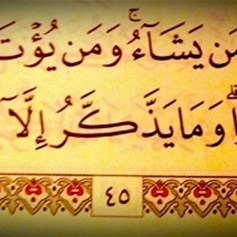 مَن يَشَآءُۚ وَمَن يُؤۡتَ
وَمَا يَذَّكَّرُ إِلَّآ
٤٥